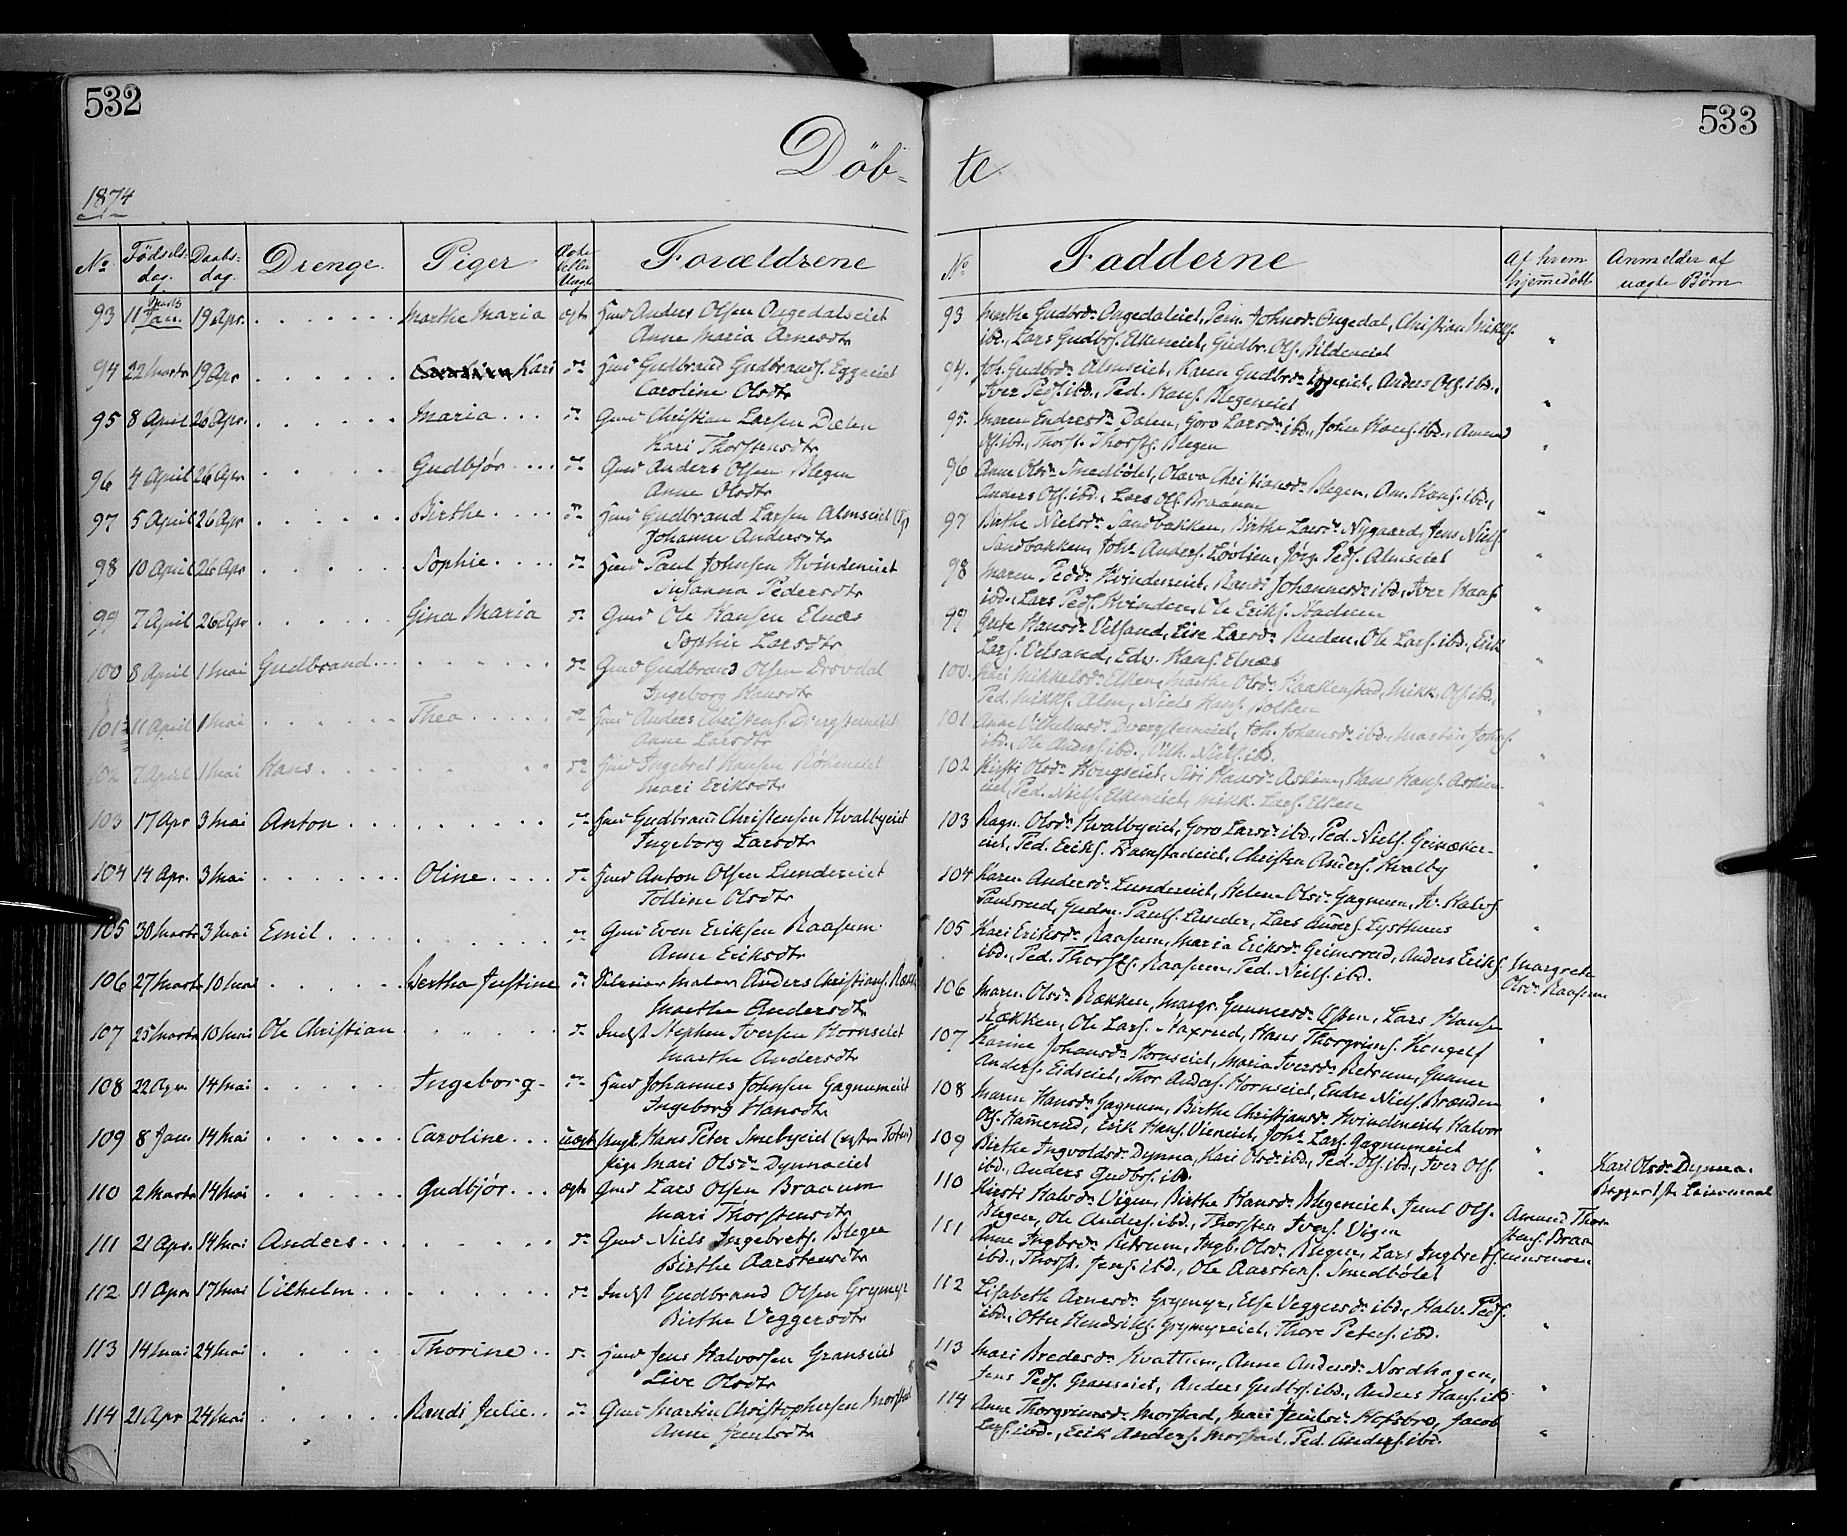 532
533
Döb-
te
1874
No
Födsels-
dag.
Daabs-
dag.
Drenge.
Piger
Ægte
eller
Uægte
Forældrene
No
Fadderne
Af hvem
hjemmedöbt
Anmelder af
uægte Börn
93 11 Marts Jan. 19 Apr. Marthe Maria ægt Huus Anders Olsen Ongedalseiet
Anne Maria Arnesdtr
94 22 Marts 19 Apr Kari do Huus Gudbrand Gudbrands. Eggeeiet
Caroline Olsdtr
95 8 April 26 Apr. Maria do Gmd Christian Larsen Dælen
Kari Thorstensdtr
96 4 April 26 Apr Gudbjör do Gmd Anders Olsen Blegen
Anne Olsdtr
97 5 April 26 Apr Birthe do Huus Gudbrand Larsen Almseiet
Johanne Andersdtr
98 10 April 26 Apr Sophie do Huus Paul Johnsen Hvindeneiet
Susanna Pedersdtr
99 7 April 26 Apr Gina Maria do Gmd Ole Hansen Elnæs
Sophie Larsdtr
100 8 April 1 Mai Gudbrand do Gmd Gudbrand Olsen Drövdal
Ingeborg Hansdtr
101 11 April 1 Mai Thea do Huus Anders Christens. Dvergsteneiet
Anne Larsdtr
102 7 April 1 Mai Hans do Huus Ingebret Hansen
Mari Eriksdtr
103 17 Apr 3 Mai Anton do Huus Gudbrand Christensen Hvalbyeiet
Ingeborg Larsdtr
104 14 Apr. 3 Mai Oline do Huus Anton Olsen Lundereiet
Tolline Olsdtr
105 30 Marts 3 Mai Emil do Gmd Even Eriksen Raasum
Anne Eriksdtr
106 27 Marts 10 Mai Bertha Justine do Maler Anders Christians. Rækken
Marthe Andersdtr
107 25 Marts 10 Mai Ole Christian do Indst Stephen Iversen Hornseiet
Marthe Andersdtr
108 22 Apr. 14 Mai Ingeborg do Huus Johannes Johnsen Gagnumeiet
Ingeborg Hansdtr
109 8 Jan. 14 Mai Caroline uægt Ungk. Hans Peter Smebyeiet (vestre Toten)
Pige Mari Olsdr Dynnaeiet
110 2 Marts 14 Mai Gudbjör ægte Gmd Lars Olsen Braaum
Mari Thorstensdtr
111 21 Apr. 14 Mai Anders do Gmd Niels Ingebrets. Blegen
Birthe Aarstensdtr
112 11 Apr 17 Mai Vilhelm do Indst Gudbrand Olsen Grymyr
Birthe Veggersdtr
113 14 Mai 24 Mai Thorine do Huus Jens Halvorsen Granseiet
Live Olsdtr
114 21 Apr 24 Mai Randi Julie do Gmd Martin Christophersen Morstad
Anne Juulsdtr
93 Marthe Gudbrdr Ongedaleiet, Johnsdr Ongedal, Christian Mikkels.
ibd., Lars Gudbrs. Elkeneiet, Gudbr. Ols. Bildeneiet
94. Joh. Gudbrdr Almseiet, Karen Gudbrdr Eggeeiet, Anders Ols. ibd.,
Iver Peds. ibd., Ped. Hans. Blegeneiet
95. Maren Endresdr Dalen, Goro Larsdr ibd., John Hans. ibd., Amund
Ols. ibd., Thorst. Thorsts. Blegen
96 Anne Olsdr Smedbölet, Olava Christiansdr Blegen, Am. Hans. ibd.,
Anders Ols. ibd., Lars Ols. Braaum
97 Birthe Nielsdr Sandbakken, Birthe Larsdr Nygaard, Jens Niels.
Sandbakken, Johs Anders. Lövlien, Jörg. Peds. Almseiet
98 Maren Pedsdr Hvindeneiet, Randi Johannesdr ibd., Iver Hans.
ibd., Lars Peds. Hvinden, Ole Eriks.
99 Gute Hansdr Velsand, Lise Larsdr Ruden, Ole Lars. ibd., Erik
Lars. Velsand, Edv. Hans. Elnæs
100. Kari Mikkelsdr Elken, Marthe Olsdr Haakenstad, Mikk. Ols. ibd.,
Ped. Mikks. Alm, Niels Hans. Bolken
101 Anne Vilhelmsdr Dvergsteneiet, Joh. Johansdr ibd., Martin Johs.
ibd., Ole Anders. ibd., Vilh. Niels. ibd.
102 Kirsti Olsdr Hongseiet, Siri Hansdr Askim, Hans Hans. Askim
eiet, Ped. Niels. Elkeneiet, Mikk. Lars. Elken
103 Ragn. Olsdr Hvalbyeiet, Goro Larsdr ibd., Ped. Niels. Grinaker-
eiet, Ped. Eriks. Framstadeiet, Christen Anders. Hvalby
104 Karen Andersdr Lundereiet, Helene Olsdr Gagnum, Halvs.
Paulsrud, Gudm. Pauls. Lunder, Lars Anders. Lysthuus
105 Kari Eriksdr Raasum, Maria Eriksdr Grimsrud, Anders Eriks.
ibd., Ped. Thorsts. Raasum, Ped. Niels. ibd.
Margrethe
Olsdr Raasum
106 Maren Olsdr Rækken, Margr. Gunnersdr Lars Hans.
Rækken, Ole Lars. Naxrud, Hans Thorgrims.
107 Karine Johansdr Hornseiet, Maria Iversdr Retrum, Gunner
Anders. Eidseiet, Thor Anders. Hornseiet, Endre Niels. Brænden
108 Maren Hansdr Gagnum, Birthe Christiansdr Hvindeneiet, Halvor
Ols. Hammerud, Erik Hans. Vieneiet, Johs Lars. Gagnumeiet
109 Birthe Ingvoldsdr Dynna, Kari Olsdr ibd., Ped. Ols. ibd., Iver Ols.
ibd., Anders Gudbrs. ibd.
Kari Olsdr Dynna.
110 Kirsti Halvsdr Vigen, Birthe Hansdr Blegeneiet, Juul Ols.
Blegen, Ole Anders. ibd., Thorsten Ivers. Vigen
Amund Thor-
stens. Braa-
111 Anne Ingbrdr Retrum, Ingb. Olsdr Blegen, Lars Ingbrets.
ibd., Thorst. Jens. ibd., Ole Aarstens. Smedbölet
112 Lisabeth Arnesdr Grymyr, Else Veggersdr ibd., Halv. Peds.
ibd., Otter Hendriks. Grymyreiet, Thore Peters. ibd.
113 Mari Bredesdr Hvattum, Anne Andersdr Nordhagen,
Jens Peds. Granseiet, Anders Gudbrs. ibd., Anders Hans. ibd.
114 Anne Thorgrimsdr Morstad, Mari Juulsdr Hofsbro, Jacob
Lars. ibd., Erik Anders. Morstad, Ped. Anders. ibd.